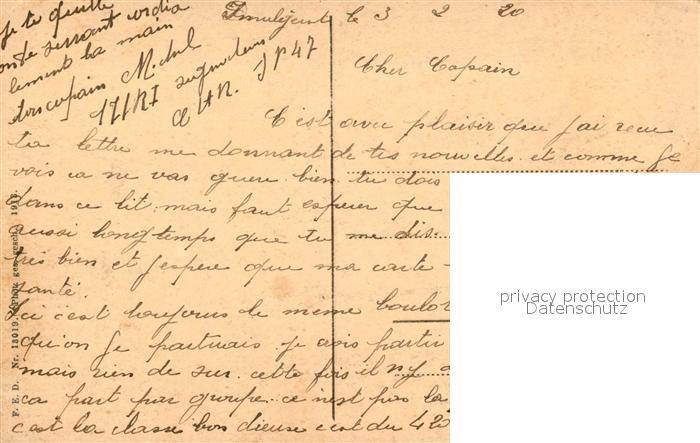 Je te quitte
en te serrant cordia
lement la main
ton copain Michel
171 RI
SP 47
le 3 2 20
Cher Copain
C'est avec plaisir que j'ai recu
ta lettre me donnant de tes nouvelles et comme je
vois ca ne vas guere bien tu dois
dans ce lit mais faut esperer que
aussi longtemps que tu me dis
tres bien et j'espere que ma carte
santé
Ici c'est toujours le meme boulot
qu'on je partirais je crois partir
mais rien de sur cette fois il n'y a
ca part par groupe ce n'est pas la
c'est la classe bon dieu c'est du 420
F. E. D. Nr. 13019
gesch. 191
privacy protection
Datenschutz